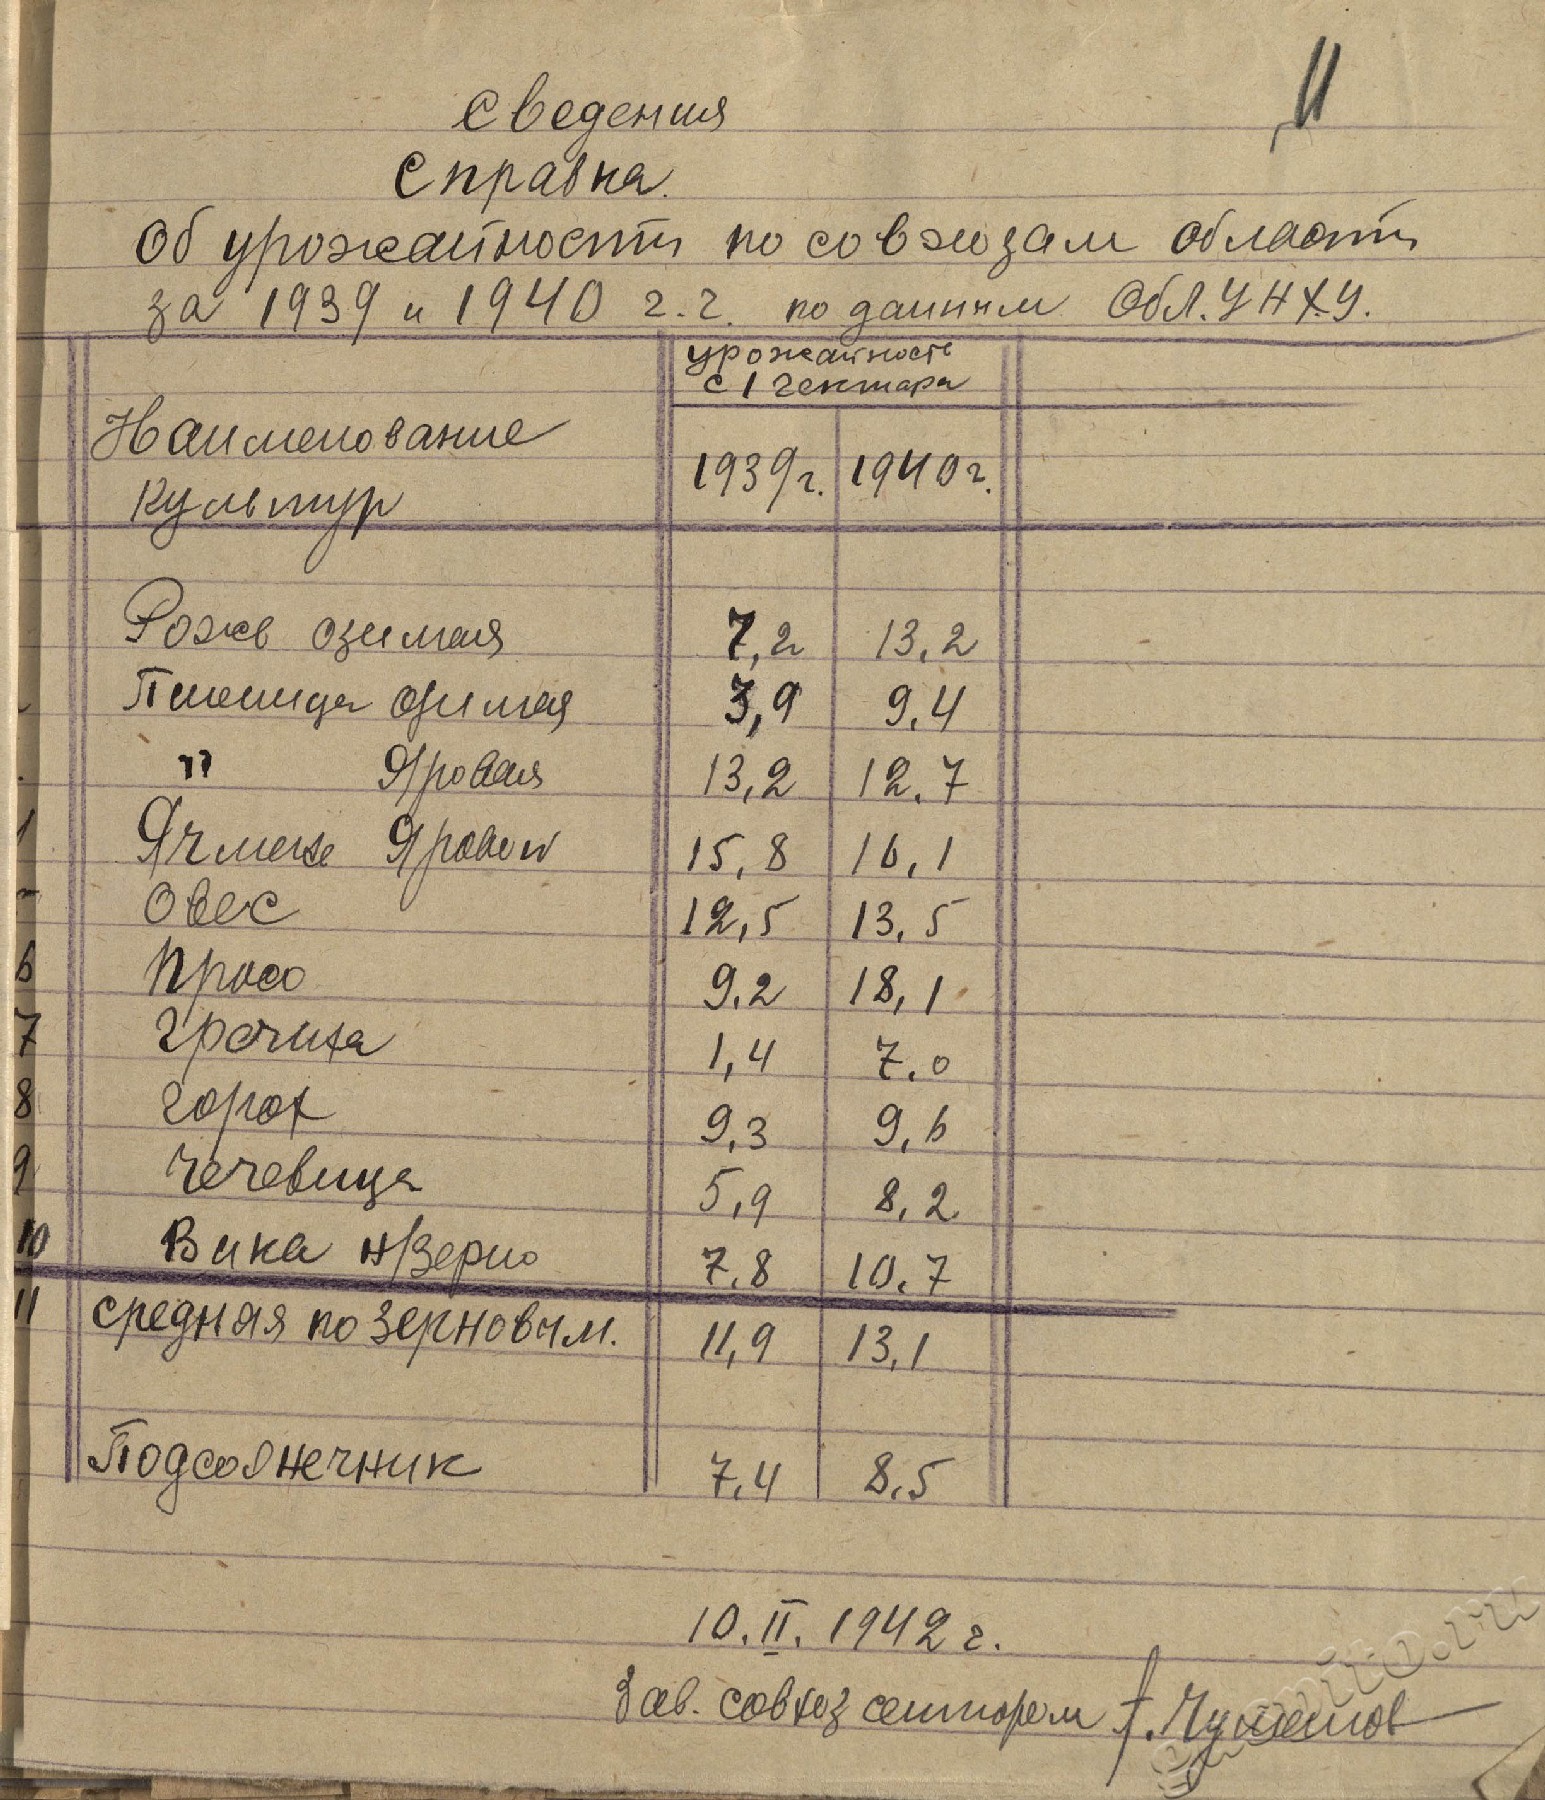 11
Сведения
Справка.
Об урожайности по совхозам области
за 1939 и 1940 г.г. по данным Обл.УНХУ.
Наименование культур
урожайность
с 1 гектара
1939г. 1940г.
Рожь озимая 7,2 13,2
Пшеница озимая 3,9 9,4
" Яровая 13,2 12,7
Ячмень Яровой 15,8 16,1
Овес 12,5 13,5
6 Просо 9,2 18,1
7 Гречиха 1,4 7,0
8 Горох 9,3 9,6
9 Чечевица 5,9 8,2
10 Вика н/зерно 7,8 10,7
11 Средняя по зерновым. 11,9 13,1
Подсолнечник 7,4 8,5
10.II.1942г.
Зав. совхоз сектором